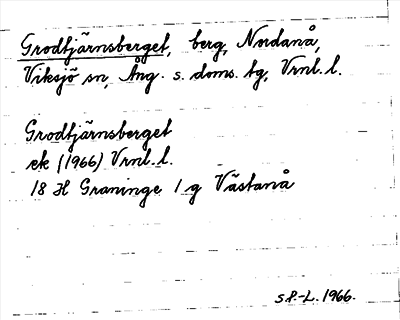 Grodtjärnsberget, berg, Nordanå,
Viksjö sn, Ång. s. doms. tg, Vrnl. l.
Grodtjärnsberget
ek (1966) Vrnl. l.
18 H Graninge 1 g Västanå
S P.-L. 1966.